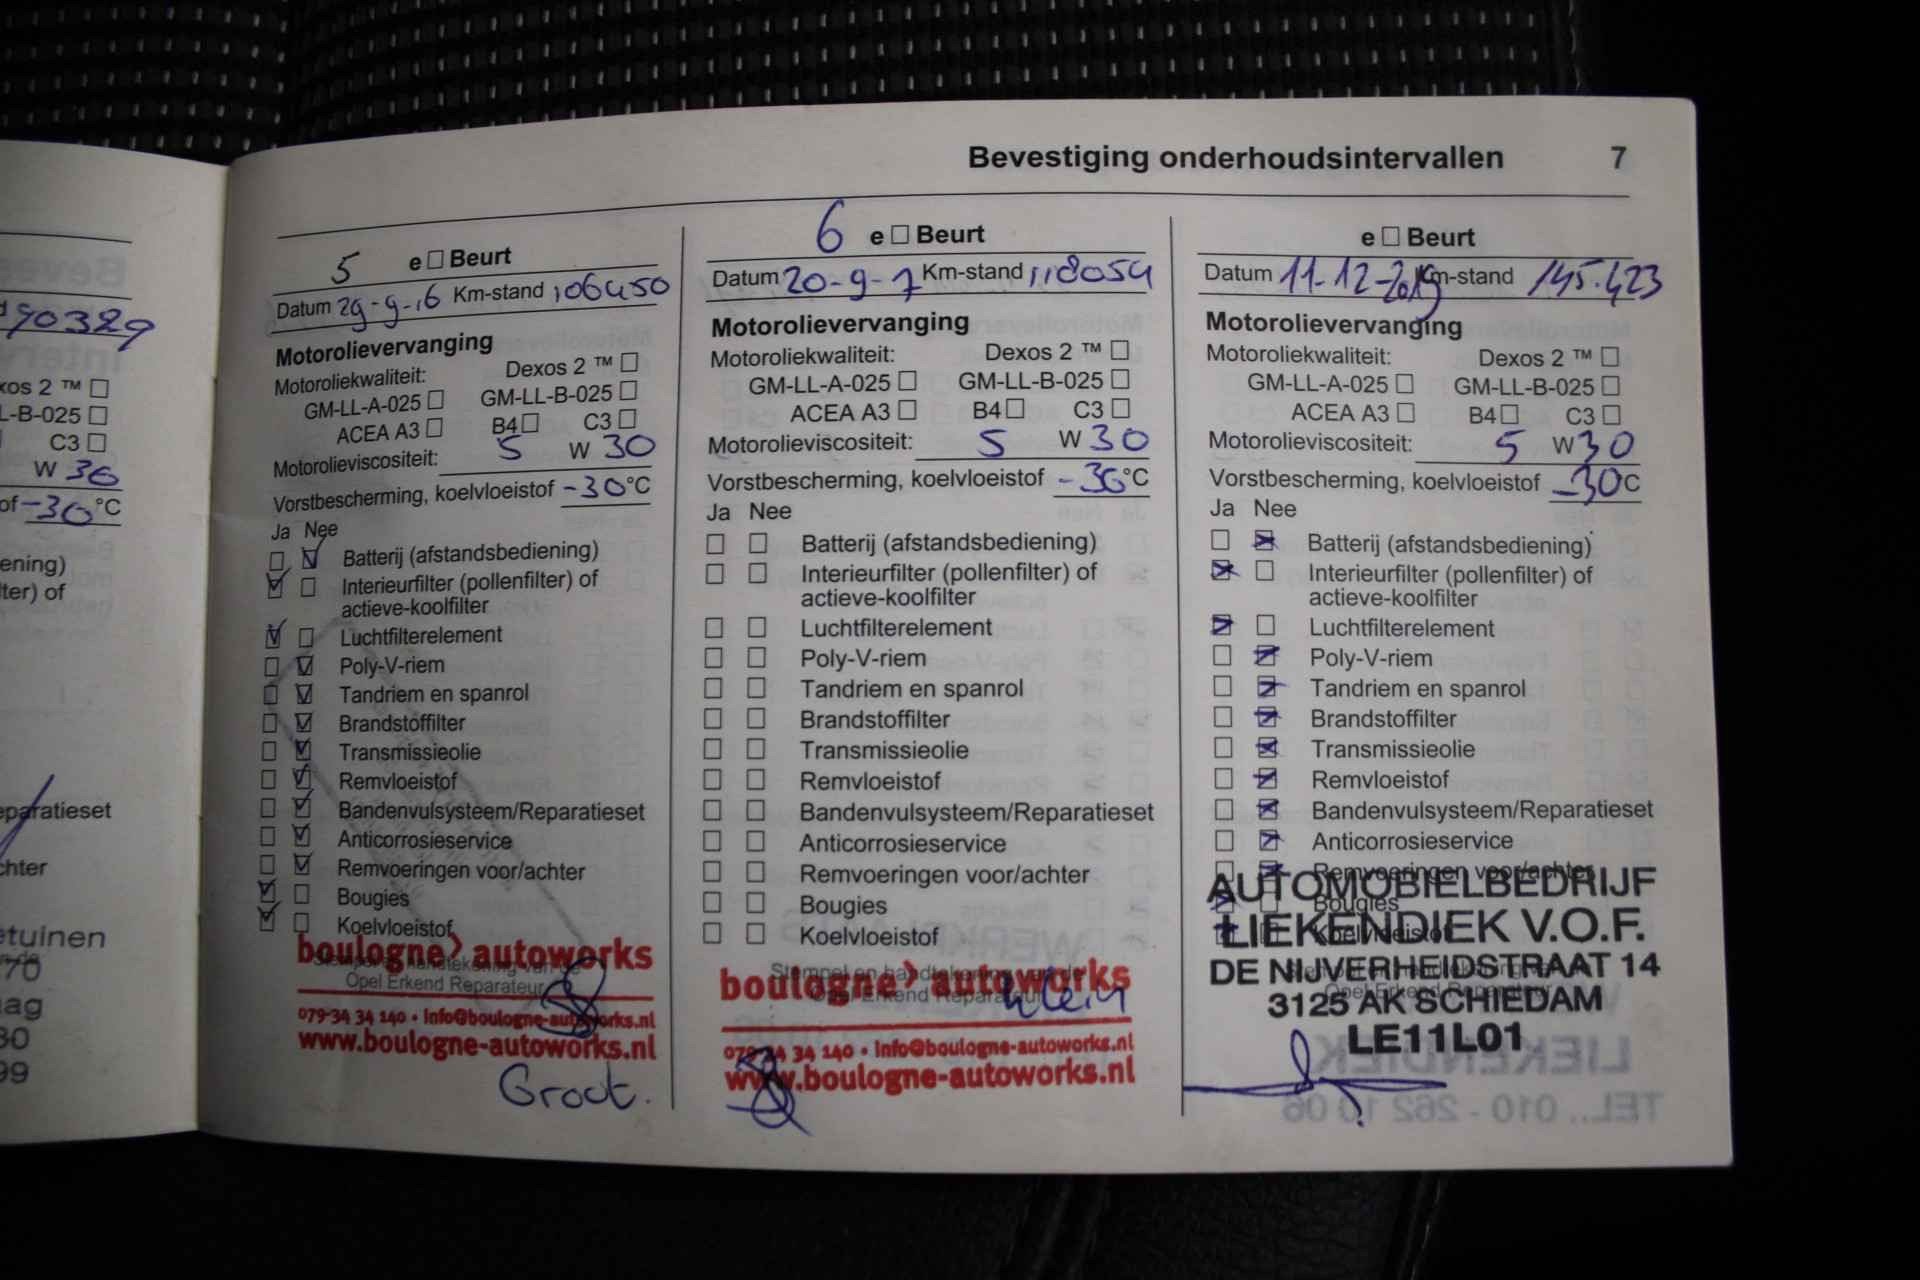 Bevestiging onderhoudsintervallen 7
90329
xos 2 ™
L-B-025
C3
W 30
of -30 °C
ening)
lter) of
eparatieset
chter
etuinen
70
aag
30
99
5 e Beurt
Datum 29-9-16 Km-stand 106450
Motorolievervanging
Motoroliekwaliteit: Dexos 2 ™
GM-LL-A-025 GM-LL-B-025
ACEA A3 B4 C3
Motorolieviscositeit: 5 W 30
Vorstbescherming, koelvloeistof -30 °C
Ja Nee
Batterij (afstandsbediening)
Interieurfilter (pollenfilter) of
actieve-koolfilter
Luchtfilterelement
Poly-V-riem
Tandriem en spanrol
Brandstoffilter
Transmissieolie
Remvloeistof
Bandenvulsysteem/Reparatieset
Anticorrosieservice
Remvoeringen voor/achter
Bougies
Koelvloeistof
Stempel en handtekening van de
Opel Erkend Reparateur
boulogne> autoworks
079-34 34 140 • Info@boulogne-autoworks.nl
www.boulogne-autoworks.nl
Groot.
6 e Beurt
Datum 20-9-7 Km-stand 118054
Motorolievervanging
Motoroliekwaliteit: Dexos 2 ™
GM-LL-A-025 GM-LL-B-025
ACEA A3 B4 C3
Motorolieviscositeit: 5 W 30
Vorstbescherming, koelvloeistof -30 °C
Ja Nee
Batterij (afstandsbediening)
Interieurfilter (pollenfilter) of
actieve-koolfilter
Luchtfilterelement
Poly-V-riem
Tandriem en spanrol
Brandstoffilter
Transmissieolie
Remvloeistof
Bandenvulsysteem/Reparatieset
Anticorrosieservice
Remvoeringen voor/achter
Bougies
Koelvloeistof
Stempel en handtekening van de
Opel Erkend Reparateur
boulogne> autoworks
klein
079-34 34 140 • Info@boulogne-autoworks.nl
www.boulogne-autoworks.nl
e Beurt
Datum 11-12-2019 Km-stand 145.423
Motorolievervanging
Motoroliekwaliteit: Dexos 2 ™
GM-LL-A-025 GM-LL-B-025
ACEA A3 B4 C3
Motorolieviscositeit: 5 W 30
Vorstbescherming, koelvloeistof -30 °C
Ja Nee
Batterij (afstandsbediening)
Interieurfilter (pollenfilter) of
actieve-koolfilter
Luchtfilterelement
Poly-V-riem
Tandriem en spanrol
Brandstoffilter
Transmissieolie
Remvloeistof
Bandenvulsysteem/Reparatieset
Anticorrosieservice
Remvoeringen voor/achter
Bougies
Koelvloeistof
Opel Erkend Reparateur
AUTOMOBIELBEDRIJF
LIEKENDIEK V.O.F.
DE NIJVERHEIDSTRAAT 14
3125 AK SCHIEDAM
LE11L01